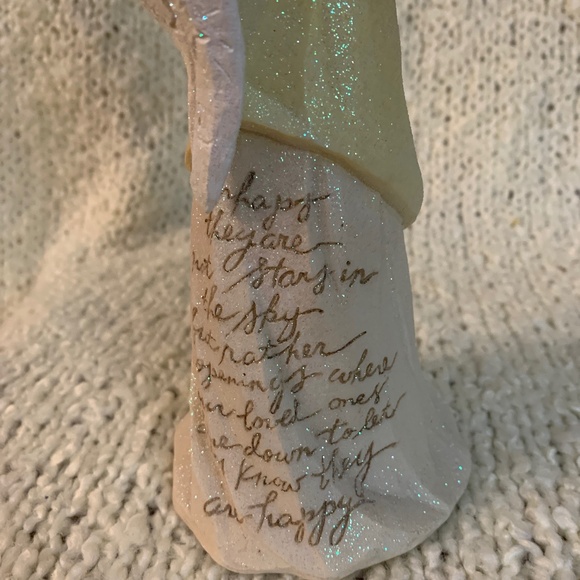 rhaps
they are
not stars in
the sky
but rather
openings where
our loved ones
ine down to let
us know they
are happy